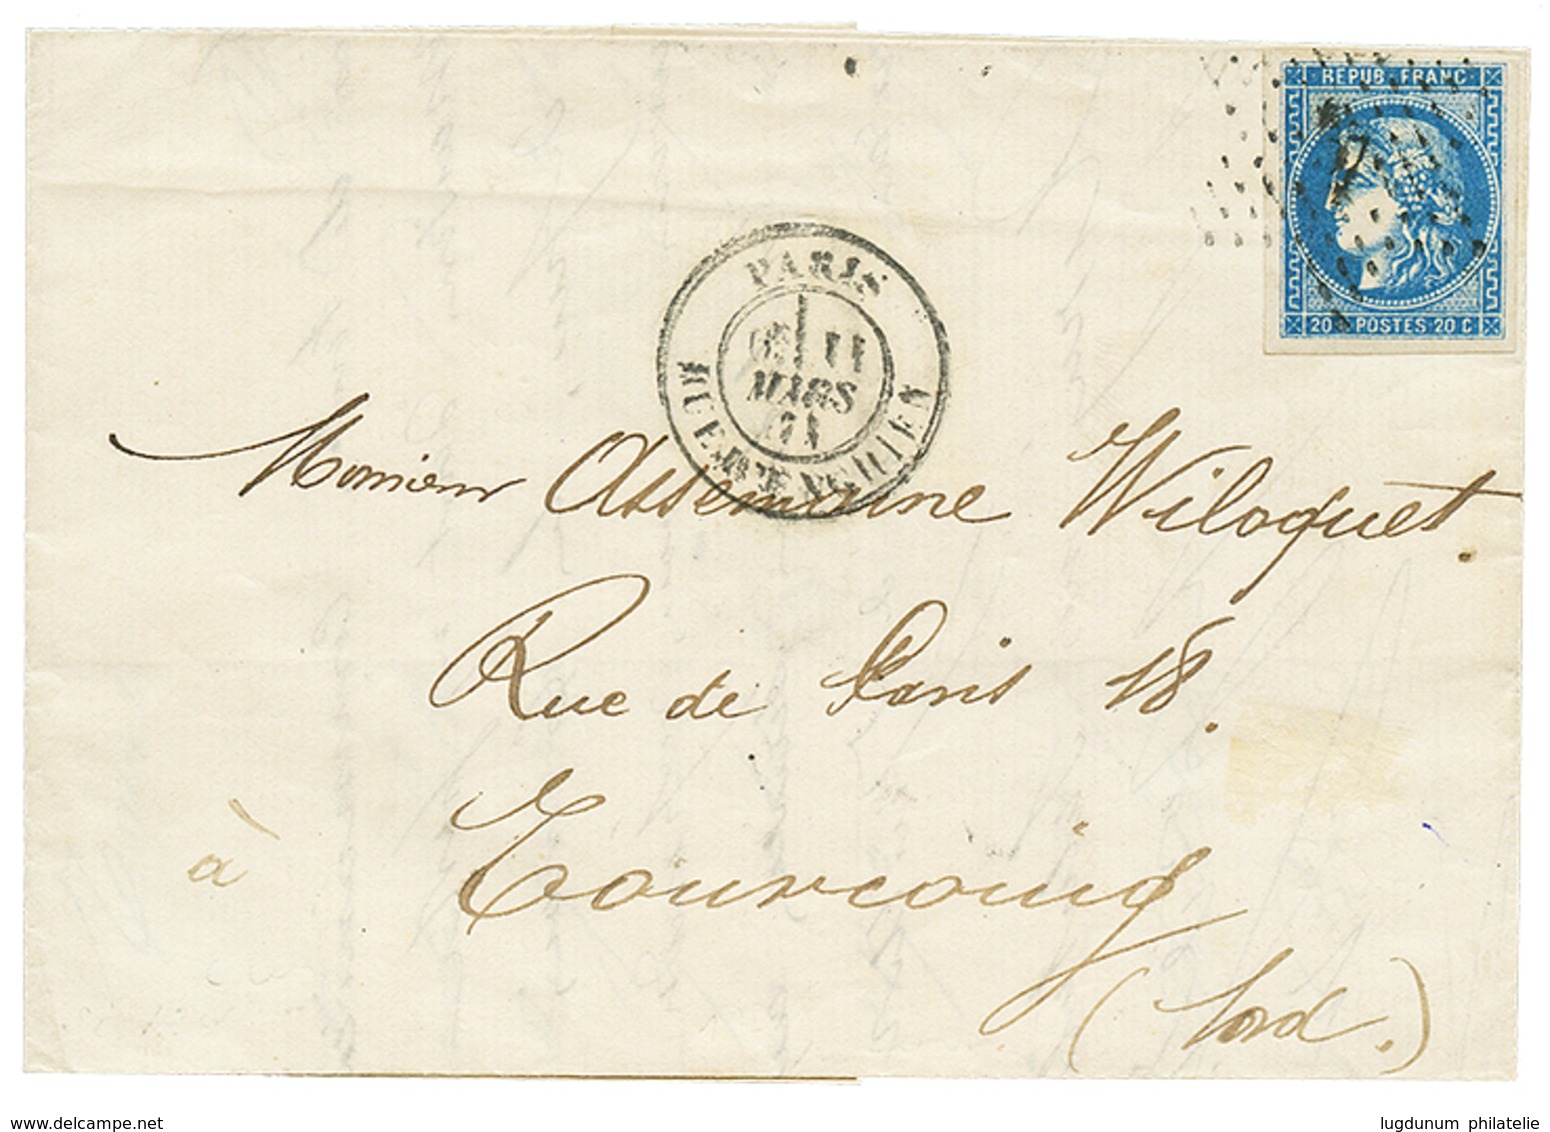 REPUB. FRANC.
20 C POSTES 20 C
PARIS
6E 11
MARS
71
RUE D'ENGHIEN
Monsieur Assemaine Wiloquet.
Rue de Paris 18.
à Tourcoing
(Nord.)
www.delcampe.net
lugdunum philatelie